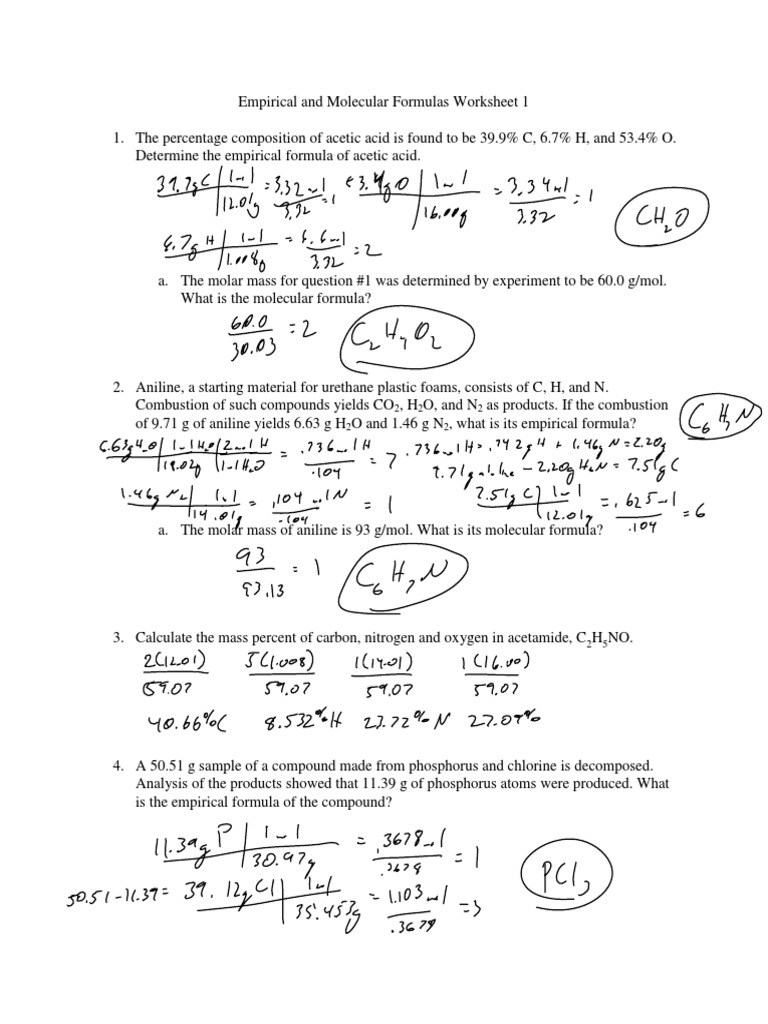 Empirical and Molecular Formulas Worksheet 1
1. The percentage composition of acetic acid is found to be 39.9% C, 6.7% H, and 53.4% O.
Determine the empirical formula of acetic acid.
39.9g C | 1 mol = 3.32 mol = 1 53.4g O | 1 mol = 3.34 mol = 1
12.01g 3.32 16.00g 3.32
CH2O
6.7g H | 1 mol = 6.6 mol = 2
1.008g 3.32
a. The molar mass for question #1 was determined by experiment to be 60.0 g/mol.
What is the molecular formula?
60.0 = 2 C2H4O2
30.03
2. Aniline, a starting material for urethane plastic foams, consists of C, H, and N.
Combustion of such compounds yields CO2, H2O, and N2 as products. If the combustion
of 9.71 g of aniline yields 6.63 g H2O and 1.46 g N2, what is its empirical formula?
C6H7N
6.63g H2O | 1 mol H2O | 2 mol H = .736 mol H = 7 .736 mol H = .742g H + 1.46g N = 2.20g
18.02g | 1 mol H2O .104 9.71g aniline - 2.20g H&N = 7.51g C
1.46g N2 | 1 mol = .104 mol N = 1 7.51g C | 1 mol = .625 mol = 6
14.01g .104 12.01g .104
a. The molar mass of aniline is 93 g/mol. What is its molecular formula?
93 = 1 C6H7N
93.13
3. Calculate the mass percent of carbon, nitrogen and oxygen in acetamide, C2H5NO.
2(12.01) 5(1.008) 1(14.01) 1(16.00)
59.07 59.07 59.07 59.07
40.66% C 8.532% H 23.72% N 27.09%
4. A 50.51 g sample of a compound made from phosphorus and chlorine is decomposed.
Analysis of the products showed that 11.39 g of phosphorus atoms were produced. What
is the empirical formula of the compound?
11.39g P | 1 mol = .3678 mol = 1
30.97g .3678
PCl3
50.51 - 11.39 = 39.12g Cl | 1 mol = 1.103 mol = 3
35.453g .3678